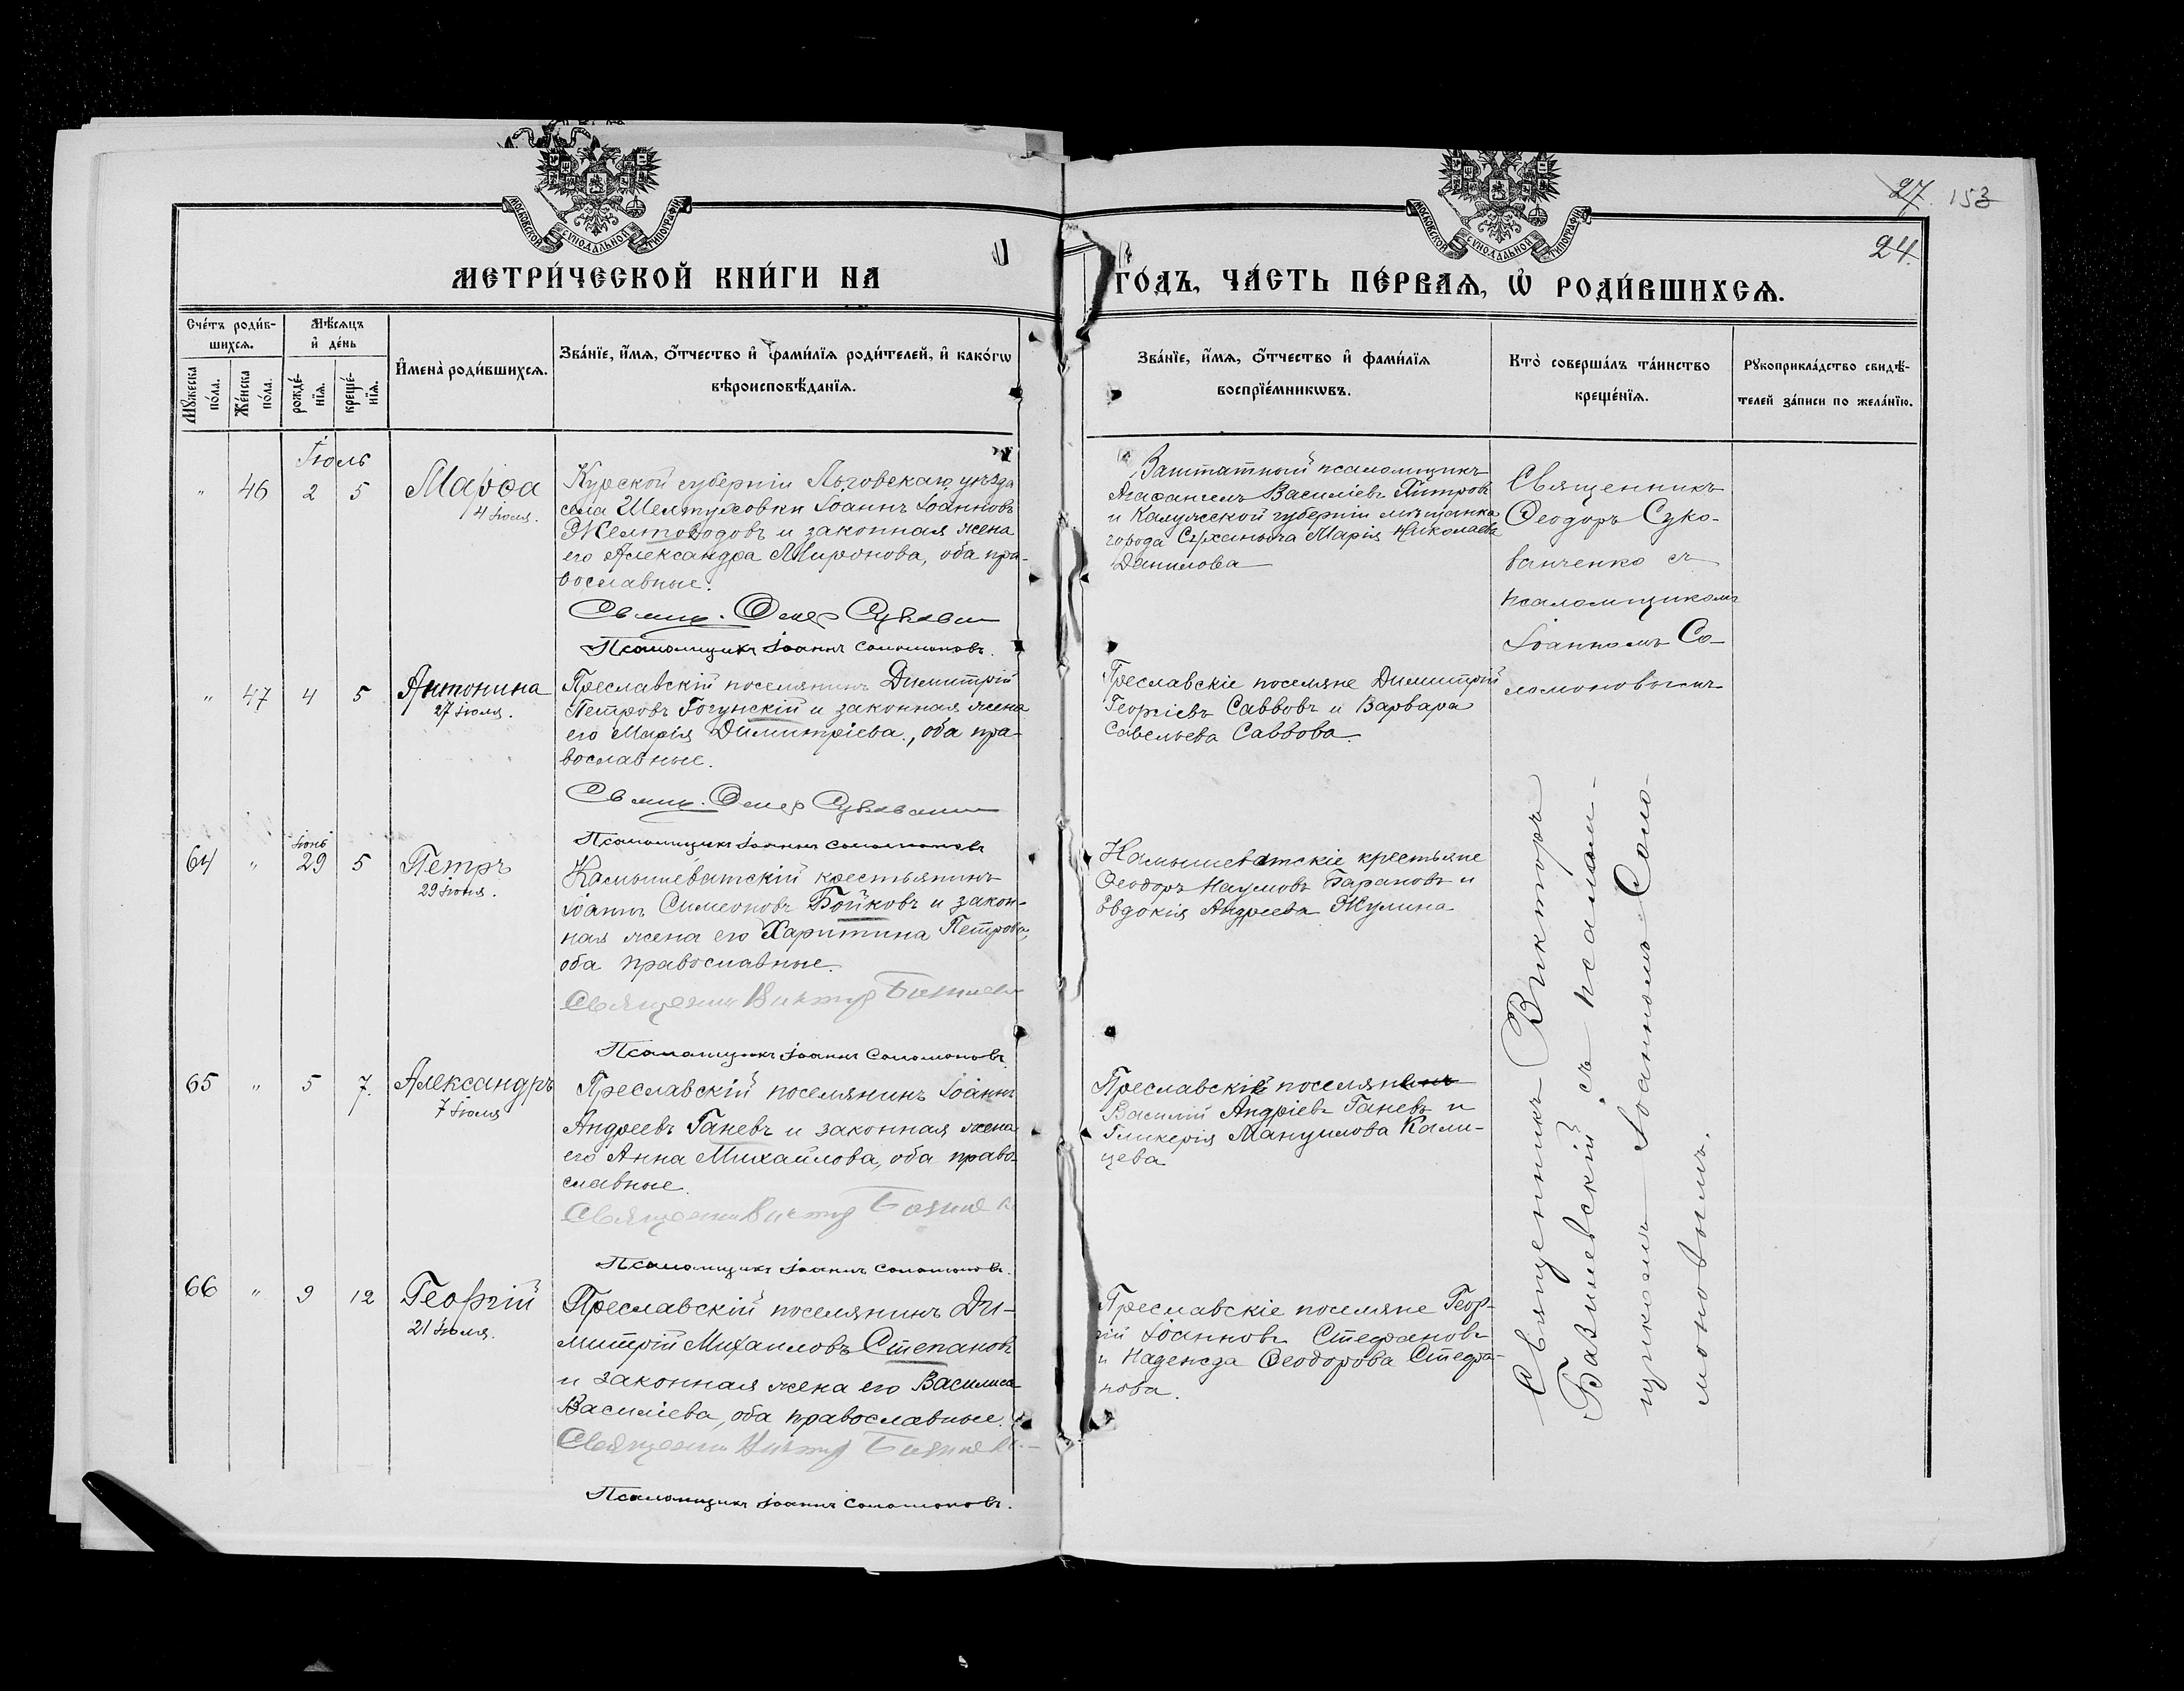 МОСКОВСКОЙ СУНОДАЛЬНОЙ ТИПОГРАФІИ
МОСКОВСКОЙ СУНОДАЛЬНОЙ ТИПОГРАФІИ
27. 153
24.
МЕТРИ́ЧЕСКОЙ КНИ́ГИ НА
ГО́ДЪ, ЧА́СТЬ ПЕ́РВАѦ, Ѡ҆ РОДИ́ВШИХСѦ.
Сче́тъ роди́в-
шихсѧ.
Мꙋжеска по́ла.
Же́нска по́ла.
Мѣ́сѧцъ
и҆ де́нь
рожде́-нїѧ.
креще́-нїѧ.
И҆мена̀ роди́вшихсѧ.
Зва́нїе, и҆́мѧ, ѻ҆́тчество и҆ фами́лїѧ роди́телей, и҆ како́гѡ
вѣроисповѣ́данїѧ.
Зва́нїе, и҆́мѧ, ѻ҆́тчество и҆ фами́лїѧ
воспрїе́мникѡвъ.
Кто̀ соверша́лъ та́инство
креще́нїѧ.
Рꙋкоприкла́дство свидѣ́-
телей за́писи по жела́нїю.
Іюль
" 46 2 5 Марѳа
4 Іюля.
Курской губерніи Льговскаго уѣзда
села Шептуховки Іоаннъ Іоанновъ
Желтоводовъ и законная жена
его Александра Миронова, оба пра-
вославные.
Псаломщикъ Іоаннъ Соломоновъ.
Заштатный псаломщикъ
Василіевъ
и Калужской губерніи мѣщанка
города Марія Николаева
Данилова
Священникъ
Ѳеодоръ Суко-
ванченко съ
псаломщикомъ
Іоанномъ Со-
ломоновымъ
" 47 4 5 Антонина
27 Іюля.
Преславскій поселянинъ Димитрій
Петровъ Гогунскій и законная жена
его Марія Димитріева, оба пра-
вославные.
Псаломщикъ Іоаннъ Соломоновъ
Преславскіе поселяне Димитрій
Георгіевъ Савовъ и Варвара
Савельева Саввова.
64 " Іюнь 29 5 Петръ
29 Іюня.
Камышеватскій крестьянинъ
Іоаннъ Симеоновъ Бойковъ и закон-
ная жена его Харитина Петрова,
оба православные.
Священникъ Викторъ
Псаломщикъ Іоаннъ Соломоновъ
Камышеватскіе крестьяне
Ѳеодоръ Наумовъ Барановъ и
Евдокія Андреева Жулина
Священникъ Викторъ
Базилевскій съ псалом-
щикомъ Іоанномъ Соло-
моновымъ.
65 " 5 7. Александръ
7 Іюля
Преславскій поселянинъ Іоаннъ
Андреевъ Ганевъ и законная жена
его Анна Михаилова, оба право-
славные.
Священникъ Викторъ
Псаломщикъ Іоаннъ Соломоновъ.
Преславскіе поселянинъ
Василій Андріевъ Ганевъ и
Гликерія Мануилова Кали-
цева
66 " 9 12 Георгій
21 Іюля.
Преславскій поселянинъ Ди-
митрій Михаиловъ Степановъ
и законная жена его Василиса
Василіева, оба православные.
Священникъ Викторъ
Псаломщикъ Іоаннъ Соломоновъ.
Преславскіе поселяне Геор-
гій Іоанновъ Стефановъ
и Надежда Ѳеодорова Стефа-
нова.